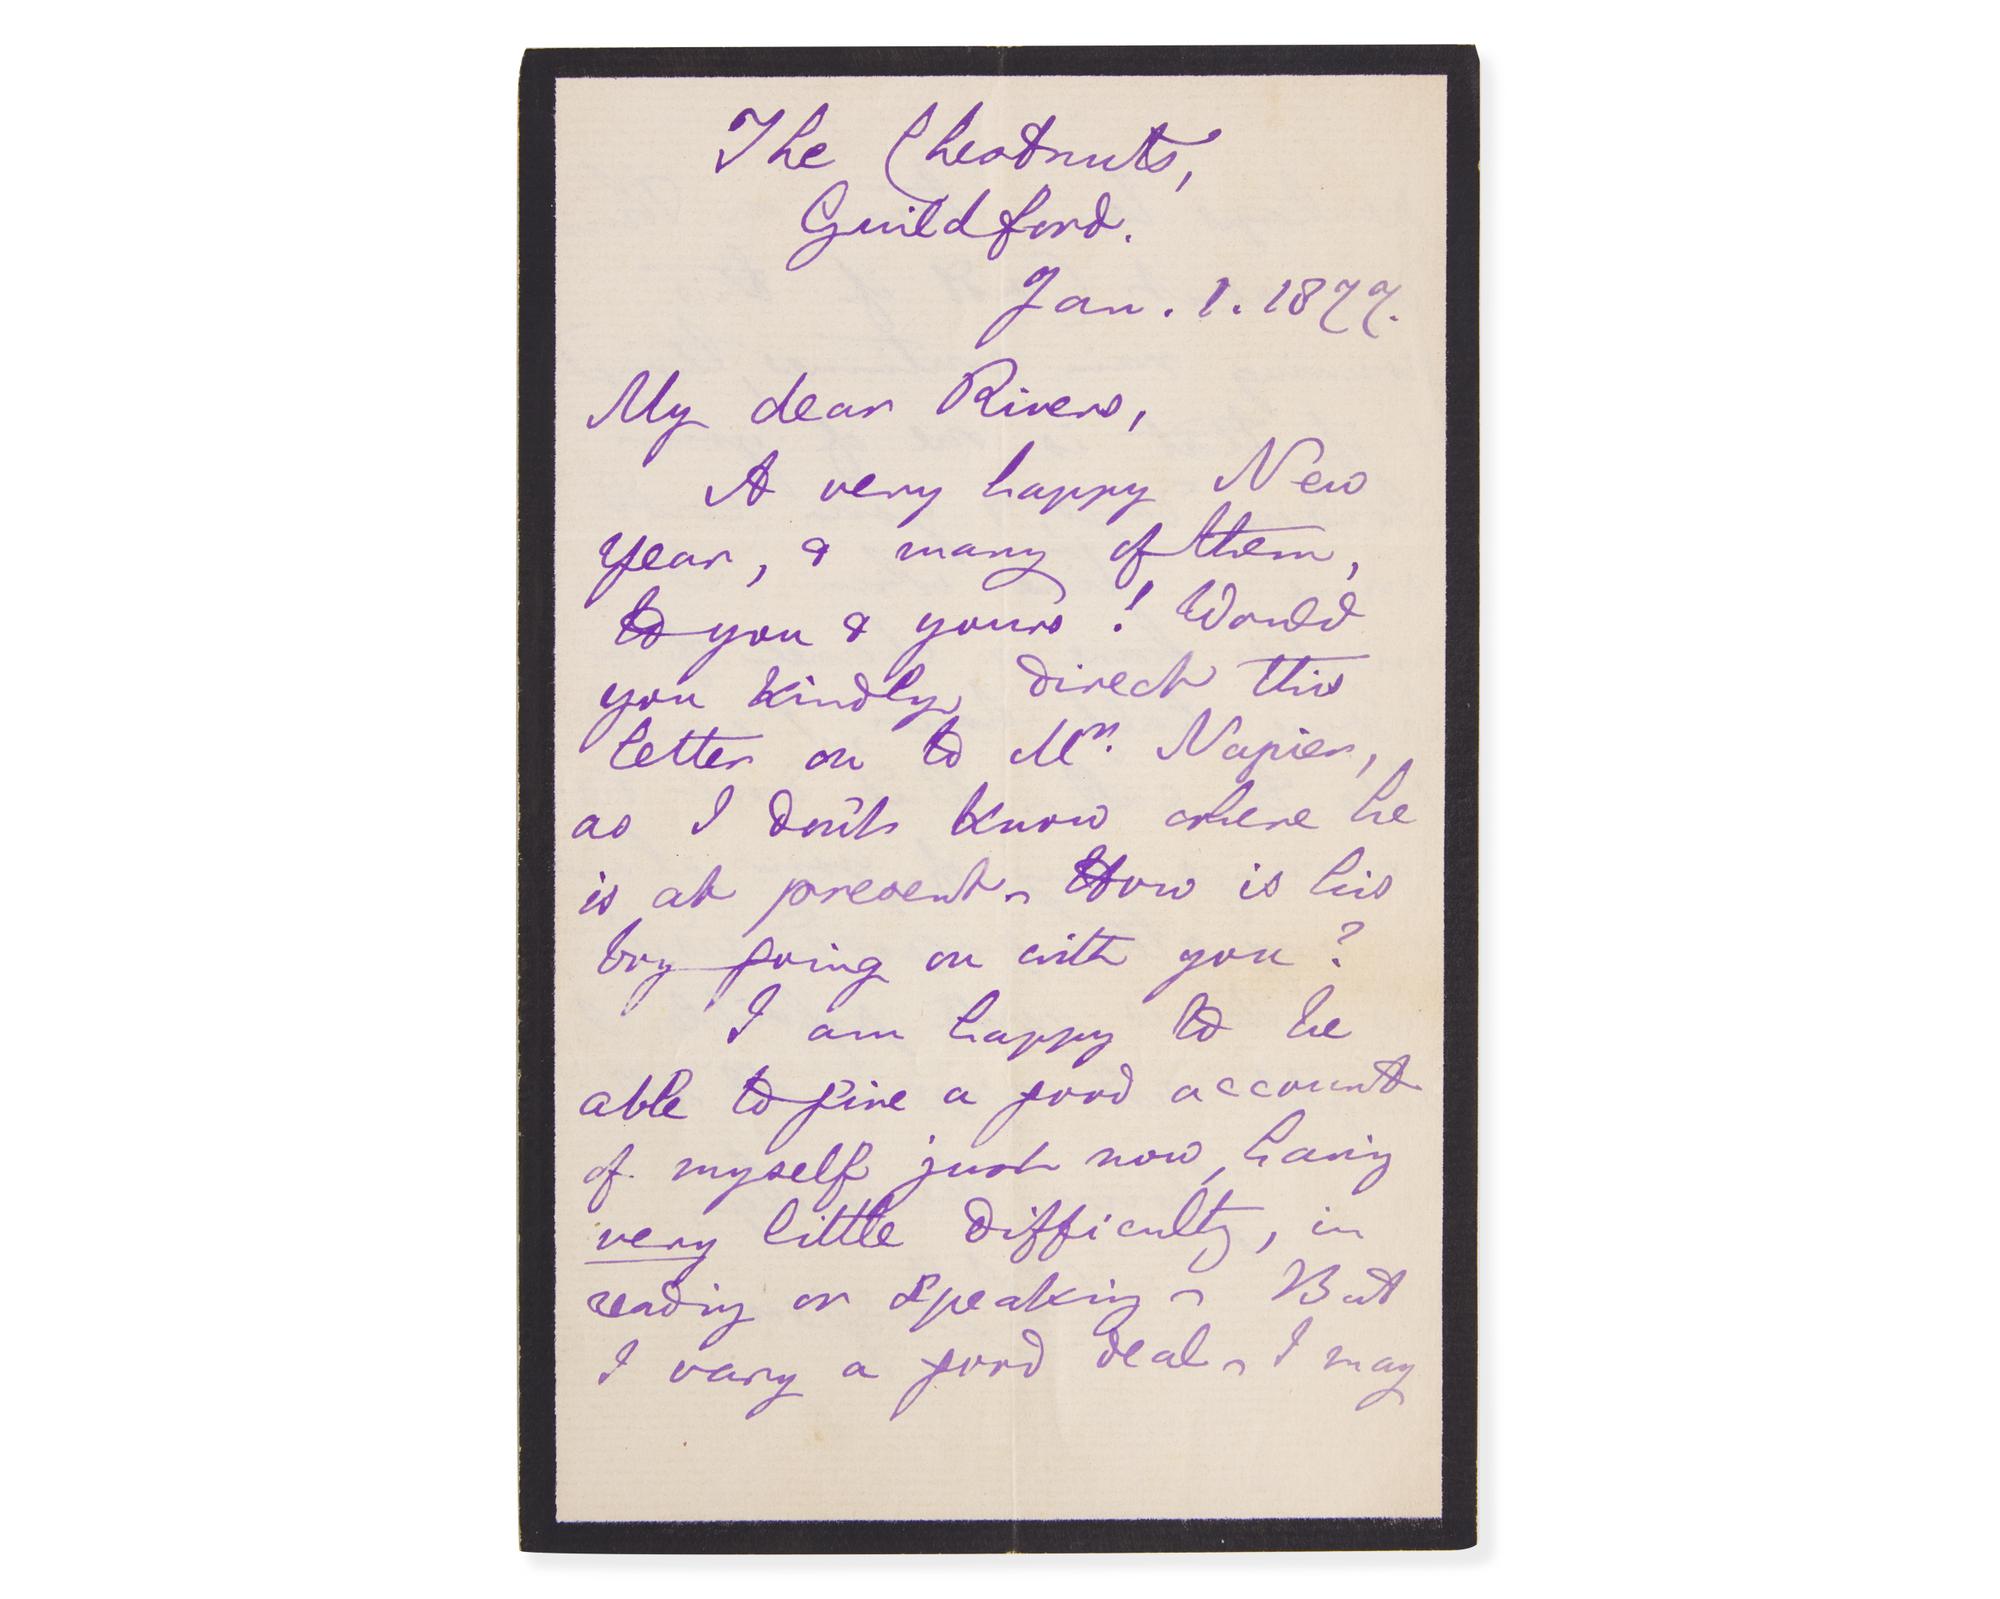 The Chestnuts,
Guildford.
Jan. 1. 1877.
My dear Rivers,
A very happy New
Year, & many of them,
to you & yours! Would
you kindly direct this
letter on to Mr. Napier,
as I don't know where he
is at present. How is his
boy going on with you?
I am happy to be
able to give a good account
of myself just now, having
very little difficulty, in
reading or speaking. But
I vary a good deal. I may